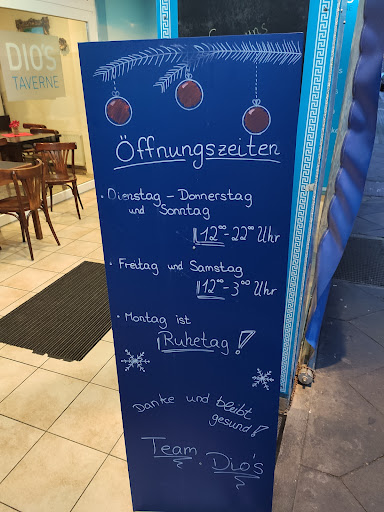 DIO'S
TAVERNE
Öffnungszeiten
· Dienstag - Donnerstag
und Sonntag
12⁰⁰-22⁰⁰ Uhr
· Freitag und Samstag
12⁰⁰-3⁰⁰ Uhr
· Montag ist
Ruhetag!
Danke und bleibt
gesund!
Team
Dio's